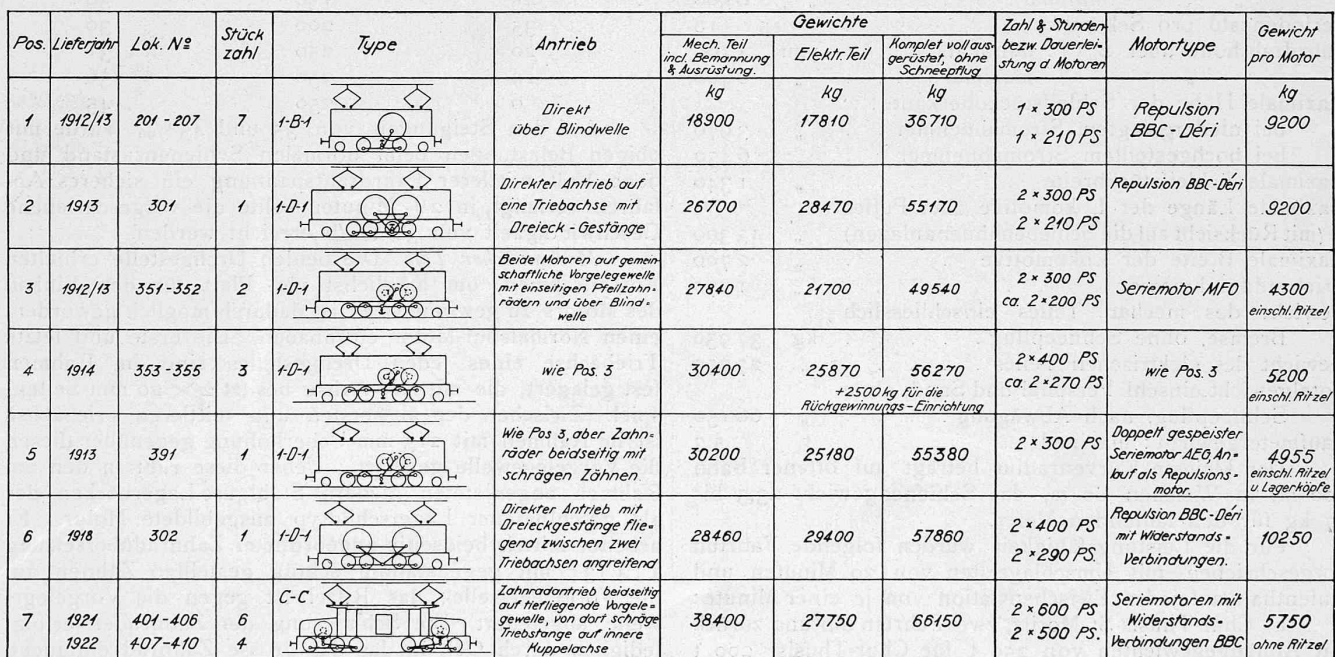 Gewichte
Pos. Lieferjahr Lok. Nº Stück zahl Type Antrieb Mech. Teil incl. Bemannung & Ausrüstung. Elektr. Teil Komplet voll ausgerüstet, ohne Schneepflug Zahl & Stunden- bezw. Dauerleistung d Motoren Motortype Gewicht pro Motor
kg kg kg kg
1 1912/13 201 - 207 7 1-B-1 Direkt über Blindwelle 18900 17810 36710 1 × 300 PS 1 × 210 PS Repulsion BBC-Déri 9200
2 1913 301 1 1-D-1 Direkter Antrieb auf eine Triebachse mit Dreieck-Gestänge 26700 28470 55170 2 × 300 PS 2 × 210 PS Repulsion BBC-Déri 9200
3 1912/13 351-352 2 1-D-1 Beide Motoren auf gemeinschaftliche Vorgelegewelle mit einseitigen Pfeilzahnrädern und über Blindwelle 27840 21700 49540 2 × 300 PS ca. 2×200 PS Seriemotor MFO 4300 einschl. Ritzel
4 1914 353-355 3 1-D-1 wie Pos. 3 30400 25870 56270 +2500 kg für die Rückgewinnungs-Einrichtung 2 × 400 PS ca. 2×270 PS wie Pos. 3 5200 einschl. Ritzel
5 1913 391 1 1-D-1 Wie Pos 3, aber Zahnräder beidseitig mit schrägen Zähnen. 30200 25180 55380 2 × 300 PS Doppelt gespeister Seriemotor AEG, Anlauf als Repulsionsmotor. 4955 einschl. Ritzel u. Lagerköpfe
6 1918 302 1 1-D-1 Direkter Antrieb mit Dreieckgestänge fliegend zwischen zwei Triebachsen angreifend 28460 29400 57860 2 × 400 PS 2 × 290 PS Repulsion BBC-Déri mit Widerstands-Verbindungen. 10250
7 1921 401-406 6 C-C. Zahnradantrieb beidseitig auf tiefliegende Vorgelegewelle, von dort schräge Triebstange auf innere Kuppelachse 38400 27750 66150 2 × 600 PS 2 × 500 PS. Seriemotoren mit Widerstands-Verbindungen BBC 5750 ohne Ritzel
1922 407-410 4